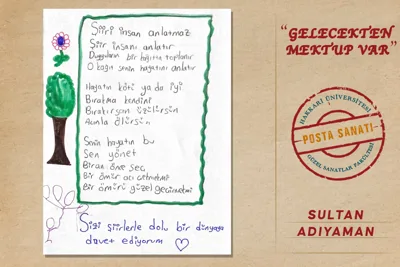 Şiiri insan anlatmaz
Şiir insanı anlatır
Duyguların bir kağıtta toplanır
O kağıt senin hayatını anlatır
Hayatın kötü ya da iyi
Bırakma kendini
Bırakırsan üzülürsün
Acınla ölürsün
Senin hayatın bu
Sen yönet
Biran öne seç
Bir ömür acı çekmemeli
Bir ömürü güzel geçirmeli
Sizi şiirlerle dolu bir dünyaya
davet ediyorum
"GELECEKTEN
MEKTUP VAR"
HAKKARİ ÜNİVERSİTESİ
POSTA SANATI
GÜZEL SANATLAR FAKÜLTESİ
SULTAN
ADIYAMAN